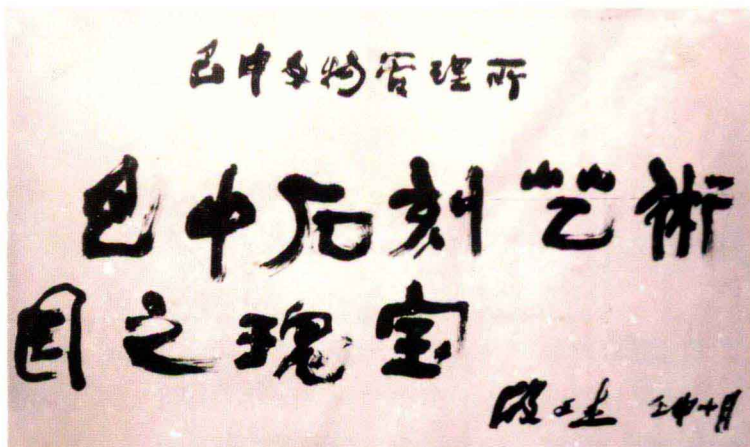 巴中文物管理所
巴中石刻艺術
国之瑰宝
壬申十月